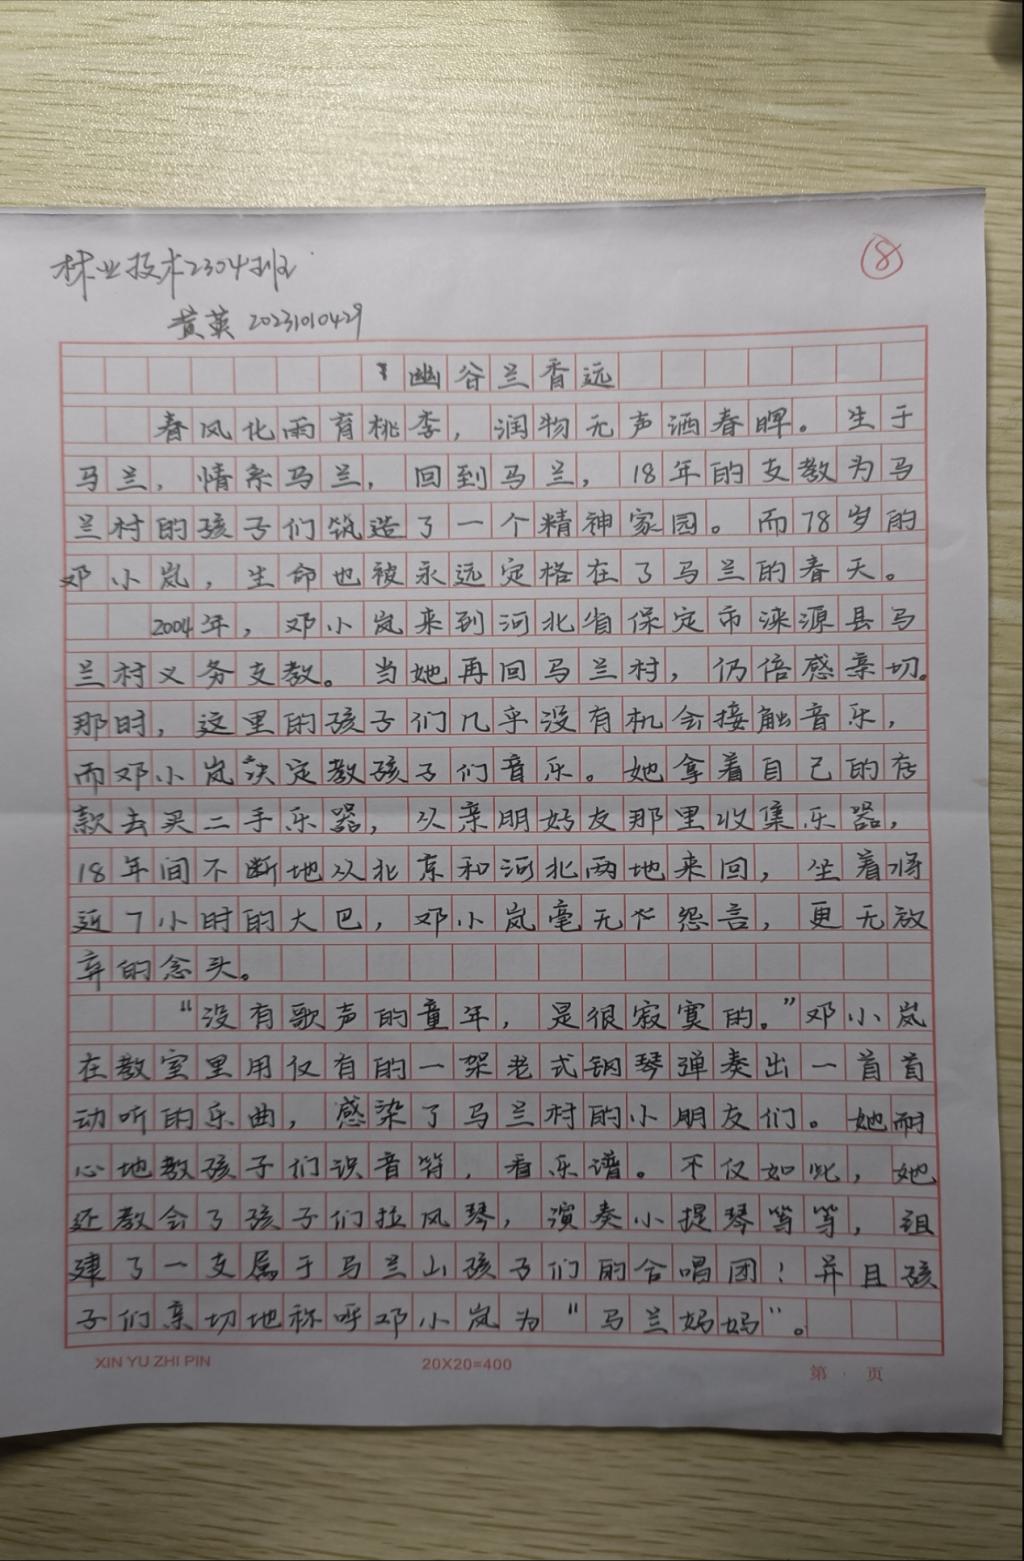 林业技术2304班
⑧
黄英 20231010429
幽谷兰香远
春风化雨育桃李，润物无声洒春晖。生于
马兰，情系马兰，回到马兰，18年的支教为马
兰村的孩子们筑造了一个精神家园。而78岁的
邓小岚，生命也被永远定格在了马兰的春天。
2004年，邓小岚来到河北省保定市涞源县马
兰村义务支教。当她再回马兰村，仍倍感亲切。
那时，这里的孩子们几乎没有机会接触音乐，
而邓小岚决定教孩子们音乐。她拿着自己的存
款去买二手乐器，从亲朋好友那里收集乐器，
18年间不断地从北京和河北两地来回，坐着将
近7小时的大巴，邓小岚毫无怨言，更无放
弃的念头。
“没有歌声的童年，是很寂寞的。”邓小岚
在教室里用仅有的一架老式钢琴弹奏出一首首
动听的乐曲，感染了马兰村的小朋友们。她耐
心地教孩子们识音符，看乐谱。不仅如此，她
还教会了孩子们拉风琴，演奏小提琴等等，组
建了一支属于马兰山孩子们的合唱团！并且孩
子们亲切地称呼邓小岚为“马兰妈妈”。
XIN YU ZHI PIN 20X20=400 第 页